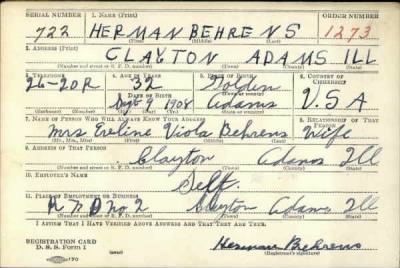 SERIAL NUMBER 1. NAME (Print) ORDER NUMBER
722 HERMAN BEHRENS 1273
(First) (Middle) (Last)
2. ADDRESS (Print)
CLAYTON ADAMS ILL
(Number and street or R. F. D. number) (Town) (County) (State)
3. TELEPHONE 4. AGE IN YEARS 5. PLACE OF BIRTH 6. COUNTRY OF CITIZENSHIP
26-20R 32 Golden
DATE OF BIRTH (Town or county)
Sept 9 1908 Adams U.S.A
(Exchange) (Number) (Mo.) (Day) (Yr.) (State or country)
7. NAME OF PERSON WHO WILL ALWAYS KNOW YOUR ADDRESS 8. RELATIONSHIP OF THAT PERSON
Mrs Eveline Viola Behrens Wife
(Mr., Mrs., Miss) (First) (Middle) (Last)
9. ADDRESS OF THAT PERSON
Clayton Adams Ill
(Number and street or R. F. D. number) (Town) (County) (State)
10. EMPLOYER'S NAME
Self.
11. PLACE OF EMPLOYMENT OR BUSINESS
R F D no 2 Clayton Adams Ill
(Number and street or R. F. D. number) (Town) (County) (State)
I AFFIRM THAT I HAVE VERIFIED ABOVE ANSWERS AND THAT THEY ARE TRUE.
REGISTRATION CARD
D. S. S. Form 1
Herman Behrens
(Registrant's signature)